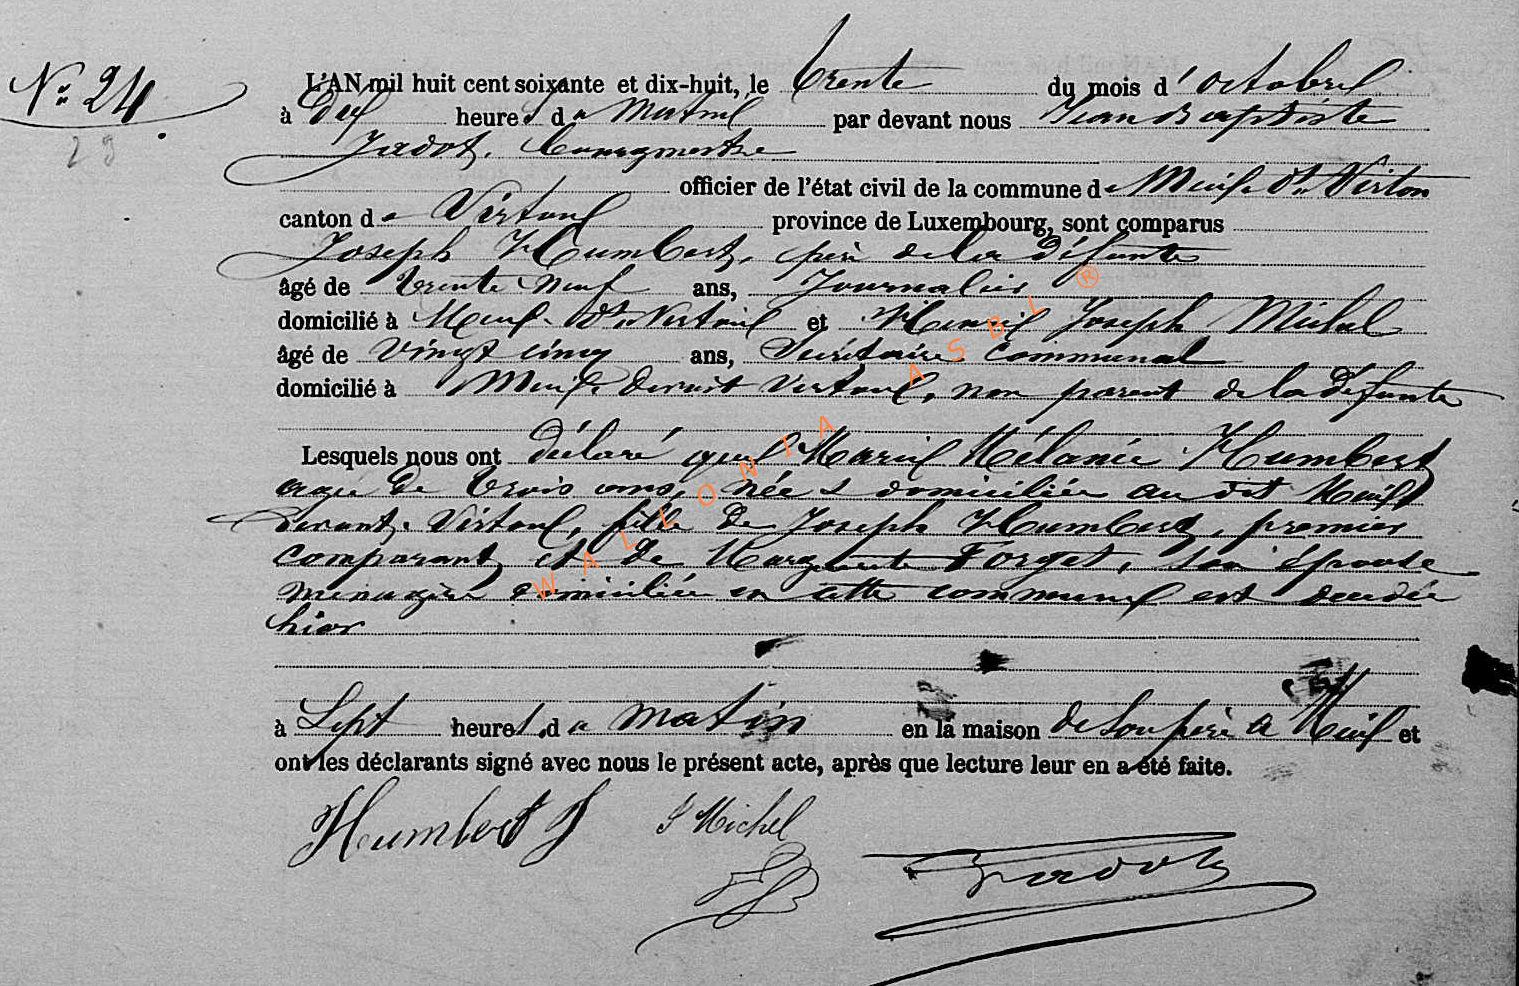 N° 24.
29
L'AN mil huit cent soixante et dix-huit, le trente du mois d'octobre
à dix heures du matin par devant nous Jean Baptiste
Jadot, bourgmestre
officier de l'état civil de la commune de Meix dt Virton
canton de Virton province de Luxembourg, sont comparus
Joseph Humbert, père de la défunte
âgé de trente neuf ans, Journalier
domicilié à Meix dt Virton et Joseph Michel
âgé de vingt cinq ans, Secrétaire communal
domicilié à Meix devant Virton, non parent de la défunte
Lesquels nous ont déclaré que Marie Mélanie Humbert
agée de trois ans, née & domiciliée au dit Meix
devant Virton, fille de Joseph Humbert, premier
comparant et de Marguerite Forget, son épouse
ménagère domiciliée en cette commune est décédée
hier
à Sept heures du matin en la maison de son père à Meix et
ont les déclarants signé avec nous le présent acte, après que lecture leur en a été faite.
Humbert J J Michel
Jadot
WALLONIA ASBL ®